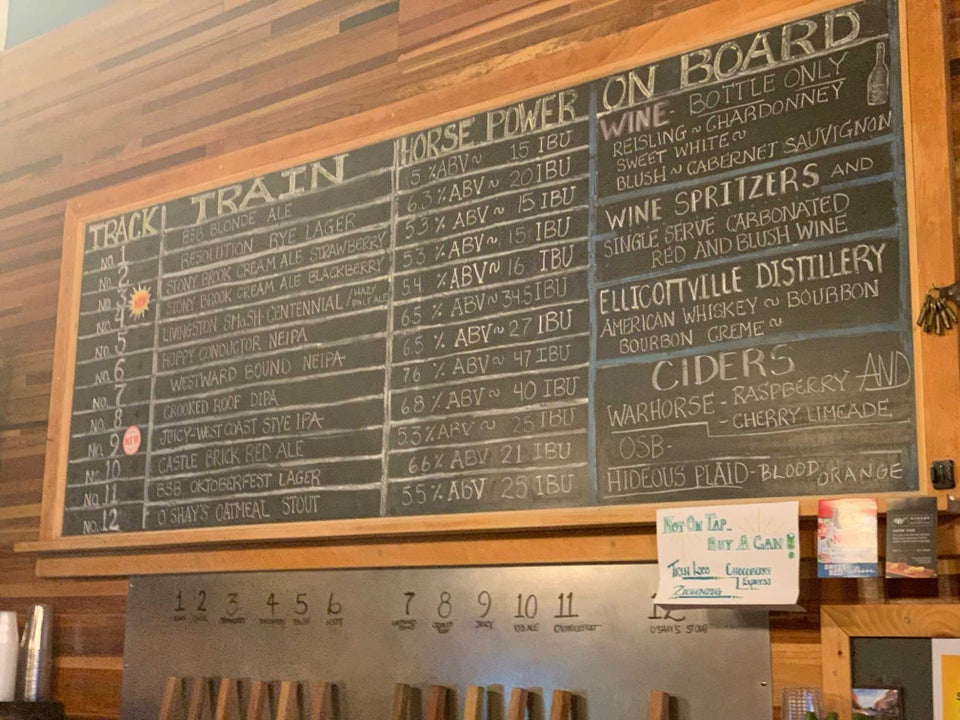 TRACK TRAIN HORSE POWER
No. 1 BSB BLONDE ALE 5 % ABV ~ 15 IBU
No. 2 RESOLUTION RYE LAGER 6.3 % ABV ~ 20 IBU
No. 3 STONY BROOK CREAM ALE STRAWBERRY 5.3 % ABV ~ 15 IBU
No. 4 STONY BROOK CREAM ALE BLACKBERRY 5.3 % ABV ~ 15 IBU
No. 5 LIVINGSTON SMaSH CENTENNIAL / HAZY PALE ALE 5.4 % ABV ~ 16 IBU
No. 6 HOPPY CONDUCTOR NEIPA 6.5 % ABV ~ 34.5 IBU
No. 7 WESTWARD BOUND NEIPA 6.5 % ABV ~ 27 IBU
No. 8 CROOKED ROOF DIPA 7.6 % ABV ~ 47 IBU
No. 9 NEW JUICY-WEST COAST STYE IPA 6.8 % ABV ~ 40 IBU
No. 10 CASTLE BRICK RED ALE 5.3 % ABV ~ 25 IBU
No. 11 BSB OKTOBERFEST LAGER 6.6 % ABV 21 IBU
No. 12 O'SHAY'S OATMEAL STOUT 5.5 % ABV 25 IBU
ON BOARD
WINE- BOTTLE ONLY
REISLING ~ CHARDONNEY
SWEET WHITE ~
BLUSH ~ CABERNET SAUVIGNON
WINE SPRITZERS AND
SINGLE SERVE CARBONATED
RED AND BLUSH WINE
ELLICOTTVILLE DISTILLERY
AMERICAN WHISKEY ~ BOURBON
BOURBON CREME ~
CIDERS
WARHORSE - RASPBERRY AND
- CHERRY LIMEADE
OSB-
HIDEOUS PLAID - BLOOD ORANGE
NOT ON TAP_
BUY A CAN!
TRAIN LOCO CHOCOBERRY
EXPRESS
ZIEGENZUG
1 2 3 4 5 6 7 8 9 10 11 12
JUICY RED ALE OKTOBERFEST O'SHAYS STOUT